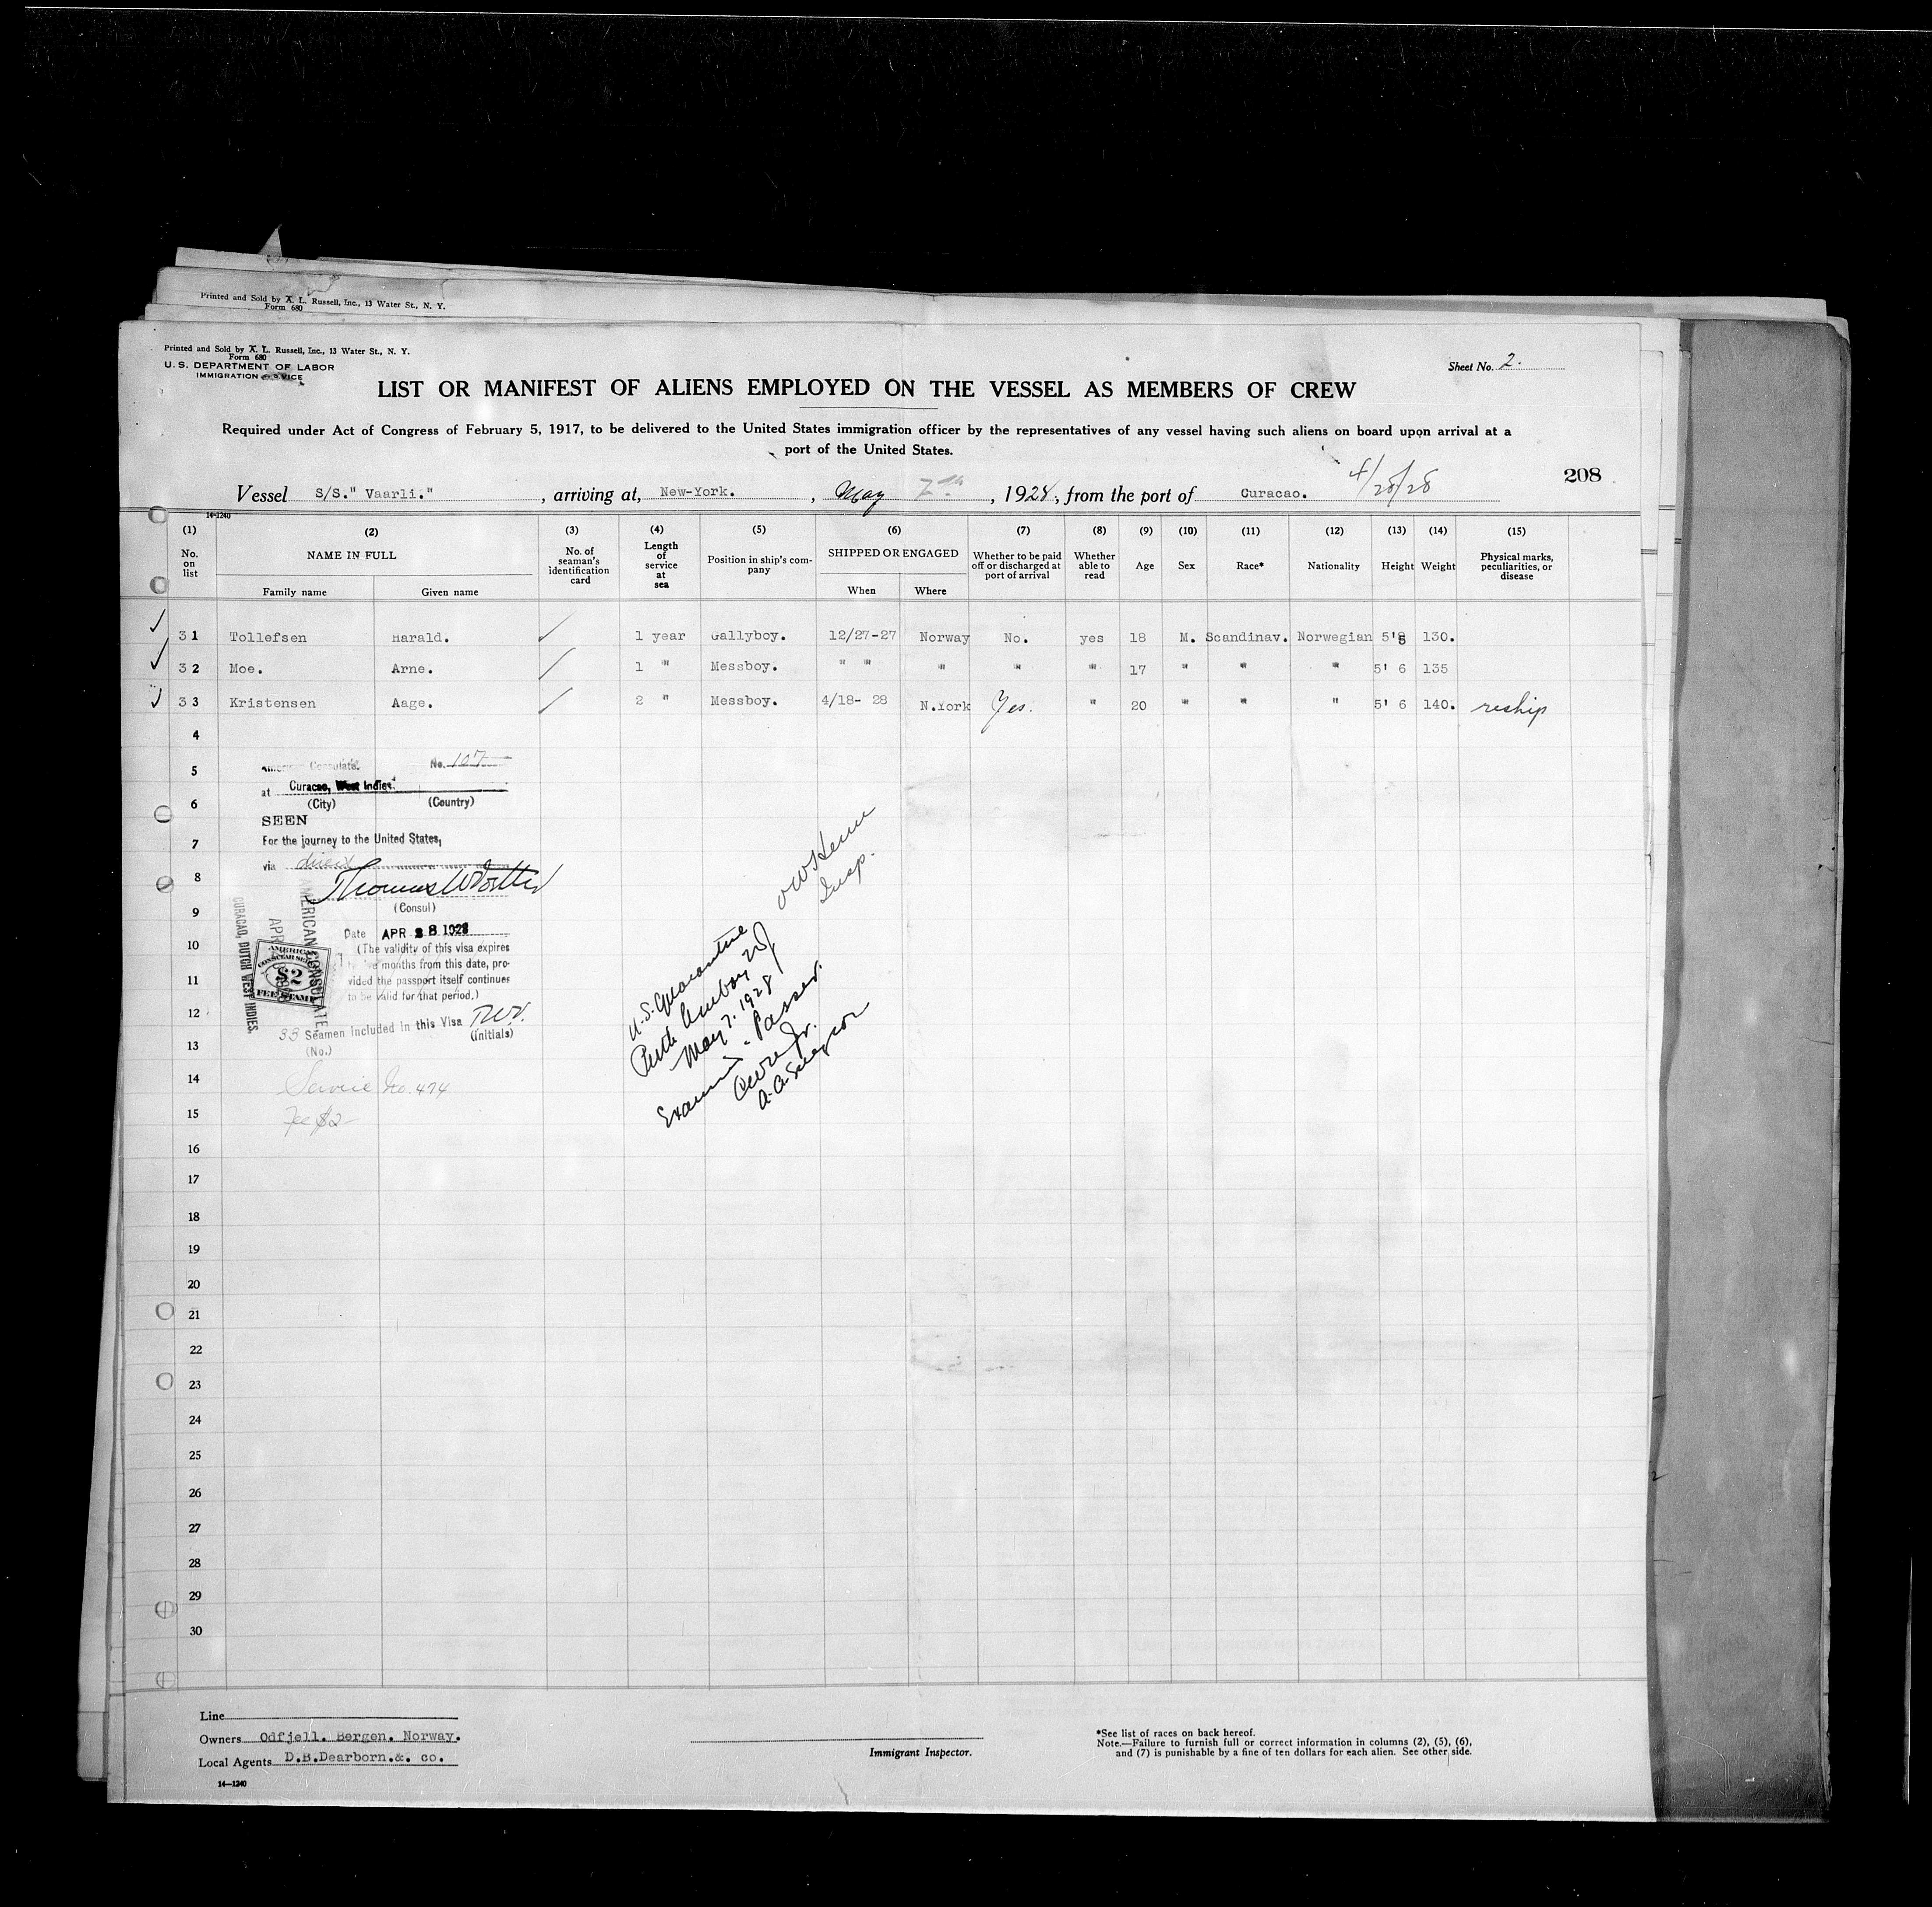 Printed and Sold by A. L. Russell, Inc., 13 Water St., N. Y.
Form 680
Printed and Sold by A. L. Russell, Inc., 13 Water St., N. Y.
Form 680
U. S. DEPARTMENT OF LABOR
IMMIGRATION SERVICE
Sheet No. 2.
LIST OR MANIFEST OF ALIENS EMPLOYED ON THE VESSEL AS MEMBERS OF CREW
Required under Act of Congress of February 5, 1917, to be delivered to the United States immigration officer by the representatives of any vessel having such aliens on board upon arrival at a
port of the United States.
208
Vessel S/S." Vaarli." , arriving at, New-York. , May 7th , 1928, from the port of Curacao. 4/28/28
14-1240
(1) (2) (3) (4) (5) (6) (7) (8) (9) (10) (11) (12) (13) (14) (15)
No. on list NAME IN FULL Family name Given name No. of seaman's identification card Length of service at sea Position in ship's company SHIPPED OR ENGAGED When Where Whether to be paid off or discharged at port of arrival Whether able to read Age Sex Race* Nationality Height Weight Physical marks, peculiarities, or disease
31 Tollefsen Harald. 1 year Gallyboy. 12/27-27 Norway No. yes 18 M. Scandinav. Norwegian 5'8 130.
32 Moe. Arne. 1 " Messboy. " " " " " 17 " " " 5' 6 135
33 Kristensen Aage. 2 " Messboy. 4/18- 28 N.York Yes. " 20 " " " 5' 6 140. reship
4
5
6
7
8
9
10
11
12
13
14
15
16
17
18
19
20
21
22
23
24
25
26
27
28
29
30
American Consulate. No. 107
at Curacao, West Indies.
(City) (Country)
SEEN
For the journey to the United States,
via direct
(Consul)
Date APR 28 1928
(The validity of this visa expires
twelve months from this date, pro-
vided the passport itself continues
to be valid for that period.)
33 Seamen included in this Visa
(No.) (Initials)
AMERICAN CONSULATE
CURACAO, DUTCH WEST INDIES.
AMERICAN
CONSULAR SERVICE
$2
FEE STAMP
Service No. 474
Fee $2-
Insp.
U.S. Quarantine
Perth Amboy NJ
May 7. 1928
Examined - Passed.
A. A. Surgeon
Line
Owners Odfjell. Bergen. Norway.
Local Agents D.B.Dearborn.&. co.
14—1240
Immigrant Inspector.
*See list of races on back hereof.
Note.—Failure to furnish full or correct information in columns (2), (5), (6),
and (7) is punishable by a fine of ten dollars for each alien. See other side.